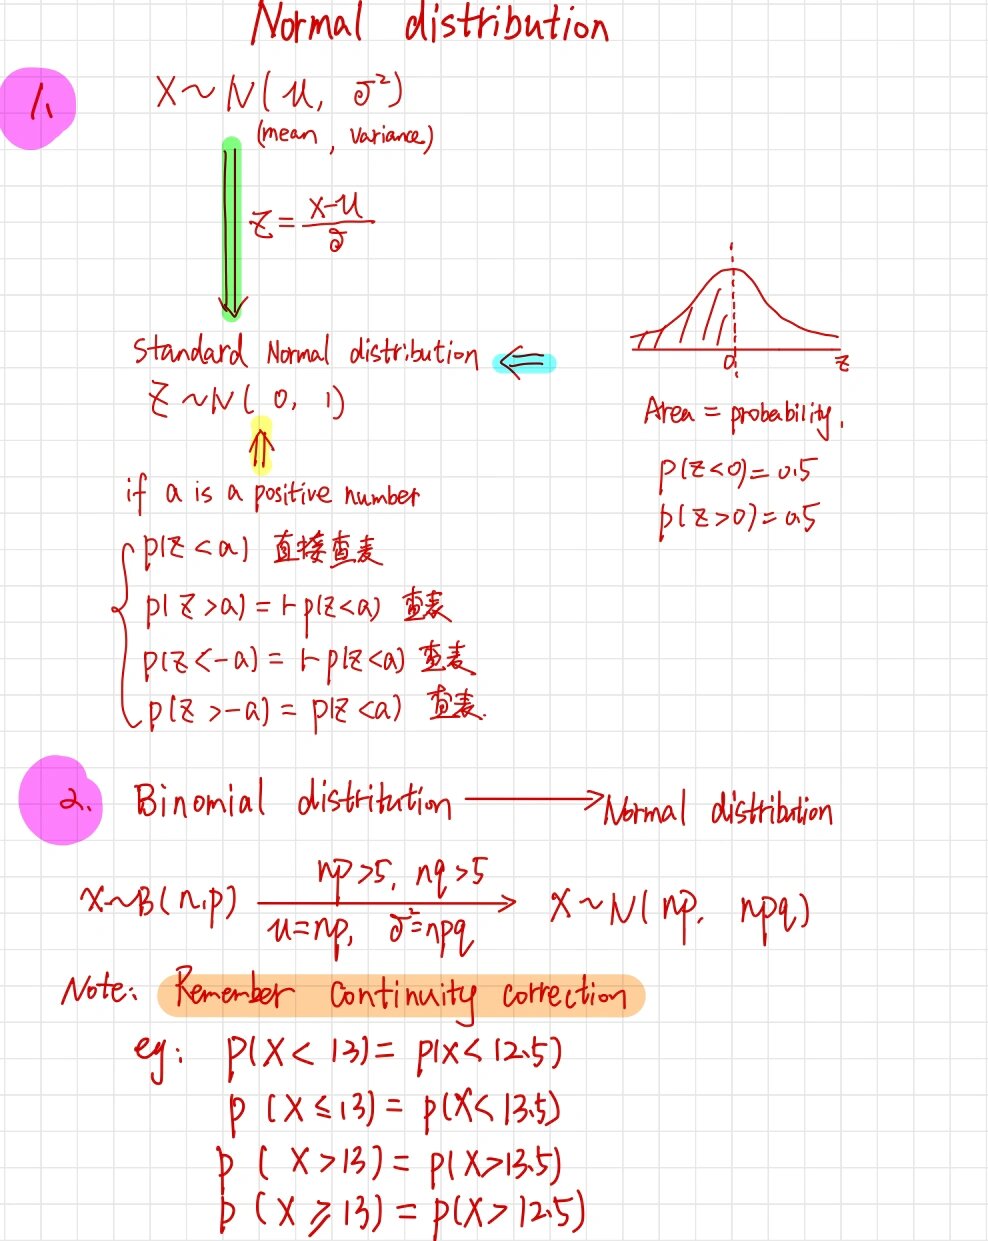 Normal distribution
1.
X ~ N( μ, σ² )
(mean , variance)
Z = (X-μ)/σ
Standard Normal distribution
Z ~ N( 0, 1 )
0 Z
Area = probability.
p(Z<0)=0.5
p(Z>0)=0.5
if a is a positive number
p(Z<a) 直接查表
p(Z>a) = 1-p(Z<a) 查表
p(Z<-a) = 1-p(Z<a) 查表
p(Z>-a) = p(Z<a) 查表.
2. Binomial distritution → Normal distribution
X~B(n,p) np>5, nq>5 X~N( np, npq )
μ=np, σ²=npq
Note: Remember Continuity correction
eg: p(X< 13)= p(X<12.5)
p (X≤13)= p(X<13.5)
p ( X>13)= p(X>13.5)
p (X≥13) = p(X>12.5)